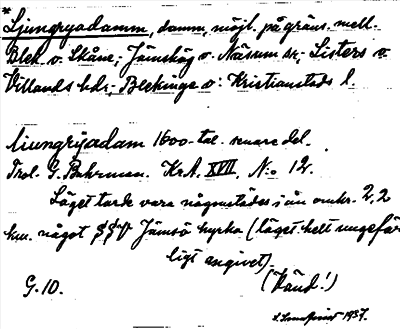 * Ljungryadamm, damm, möjl. på gräns. mell.
Blek. o. Skåne; Jämshög o. Näsum sn; Listers o.
Villands hdr; Blekinge o. Kristianstads l.
liungryadam 1600-tal. senare del.
Trol. G. Bahrman. Kr.A. XVII, N:o 12.
Läget torde vara någonstädes i ån omkr. 2,2
km. något SSV Jämsö kyrka (läget helt ungefär
ligt angivet).
G. 10. (Känd!)
1937.